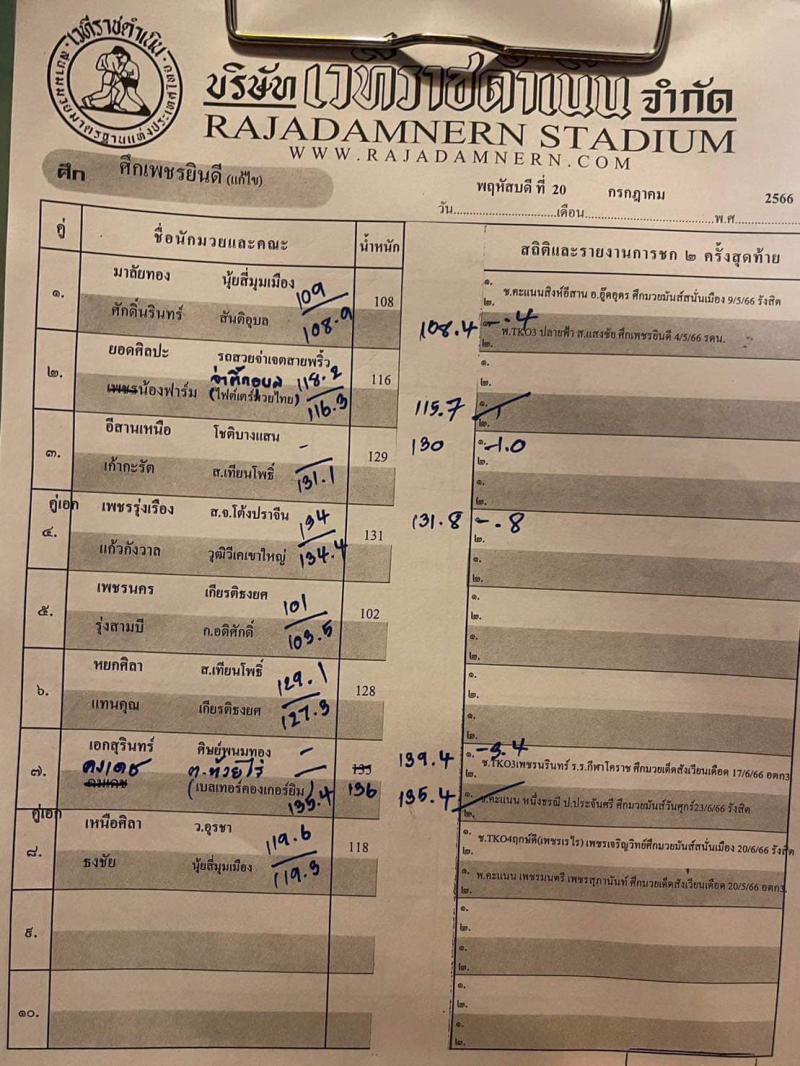 เวทีราชดำเนิน
สนามมวยมาตรฐานแห่งประเทศไทย
บริษัท เวทีราชดำเนิน จำกัด
RAJADAMNERN STADIUM
WWW.RAJADAMNERN.COM
ศึก ศึกเพชรยินดี (แก้ไข)
พฤหัสบดี ที่ 20 กรกฎาคม 2566
วัน เดือน พ.ศ
คู่ ชื่อนักมวยและคณะ น้ำหนัก สถิติและรายงานการชก ๒ ครั้งสุดท้าย
๑. มาลัยทอง นุ้ยสี่มุมเมือง 109 108 ๑. ช.คะแนนสิงห์อีสาน อ.อู๊ดอุดร ศึกมวยมันส์สนั่นเมือง 9/5/66 รังสิต
๒.
ศักดิ์นรินทร์ สันติอุบล 108.9 108.4 -.4 ๑. พ.TKO3 ปลายฟ้า ส.แสงชัย ศึกเพชรยินดี 4/5/66 รดน.
๒.
๒. ยอดศิลปะ รถสวยจ่าเจตสายพริ้ว 118.2 116 ๑.
๒.
เพชรน้องฟาร์ม (ไฟต์เตร์มวยไทย) 116.3 115.7 ๑.
๒.
๓. อีสานเหนือ โชติบางแสน - 129 130 ๑. -1.0
๒.
เก้ากะรัต ส.เทียนโพธิ์ 131.1 ๑.
๒.
คู่เอก
๔. เพชรรุ่งเรือง ส.จ.โต้งปราจีน 134 131 131.8 -.8
๒.
แก้วกังวาล วูฒิวีเคเขาใหญ่ 134.4 ๑.
๒.
๕. เพชรนคร เกียรติธงยศ 101 102 ๑.
๒.
รุ่งสามบี ก.อดิศักดิ์ 103.5 ๑.
๒.
๖. หยกศิลา ส.เทียนโพธิ์ 129.1 128 ๑.
๒.
แทนคุณ เกียรติธงยศ 127.3 ๑.
๒.
๗. เอกสุรินทร์ ศิษย์พนมทอง - 135 139.4 -3.4 ๑. ช.TKO3เพชรนรินทร์ ร.ร.กีฬาโคราช ศึกมวยเด็ดสังเวียนเดือด 17/6/66 อตก3
๒.
คงเดช ต.ห้วยไร่ 136
คมเดช (เบลเทอร์คองเกอร์ยิม) 135.4 135.4 ๑. ช.คะแนน หนึ่งธรณี ป.ประจันตรี ศึกมวยมันส์วันศุกร์23/6/66 รังสิต
๒.
คู่เอก
๘. เหนือศิลา ว.อุรชา 119.6 118 ๑. ช.TKO4ฤกษ์ดี(เพชรเรไร) เพชรเจริญวิทย์ศึกมวยมันส์สนั่นเมือง 20/6/66 รังสิต
๒.
ธงชัย นุ้ยสี่มุมเมือง 119.3 ๑. พ.คะแนน เพชรมนตรี เพชรสุภานันท์ ศึกมวยเด็ดสังเวียนเดือด 20/5/66 อตก3
๒.
๙. ๑.
๒.
๑.
๒.
๑๐. ๑.
๒.
๑.
๒.